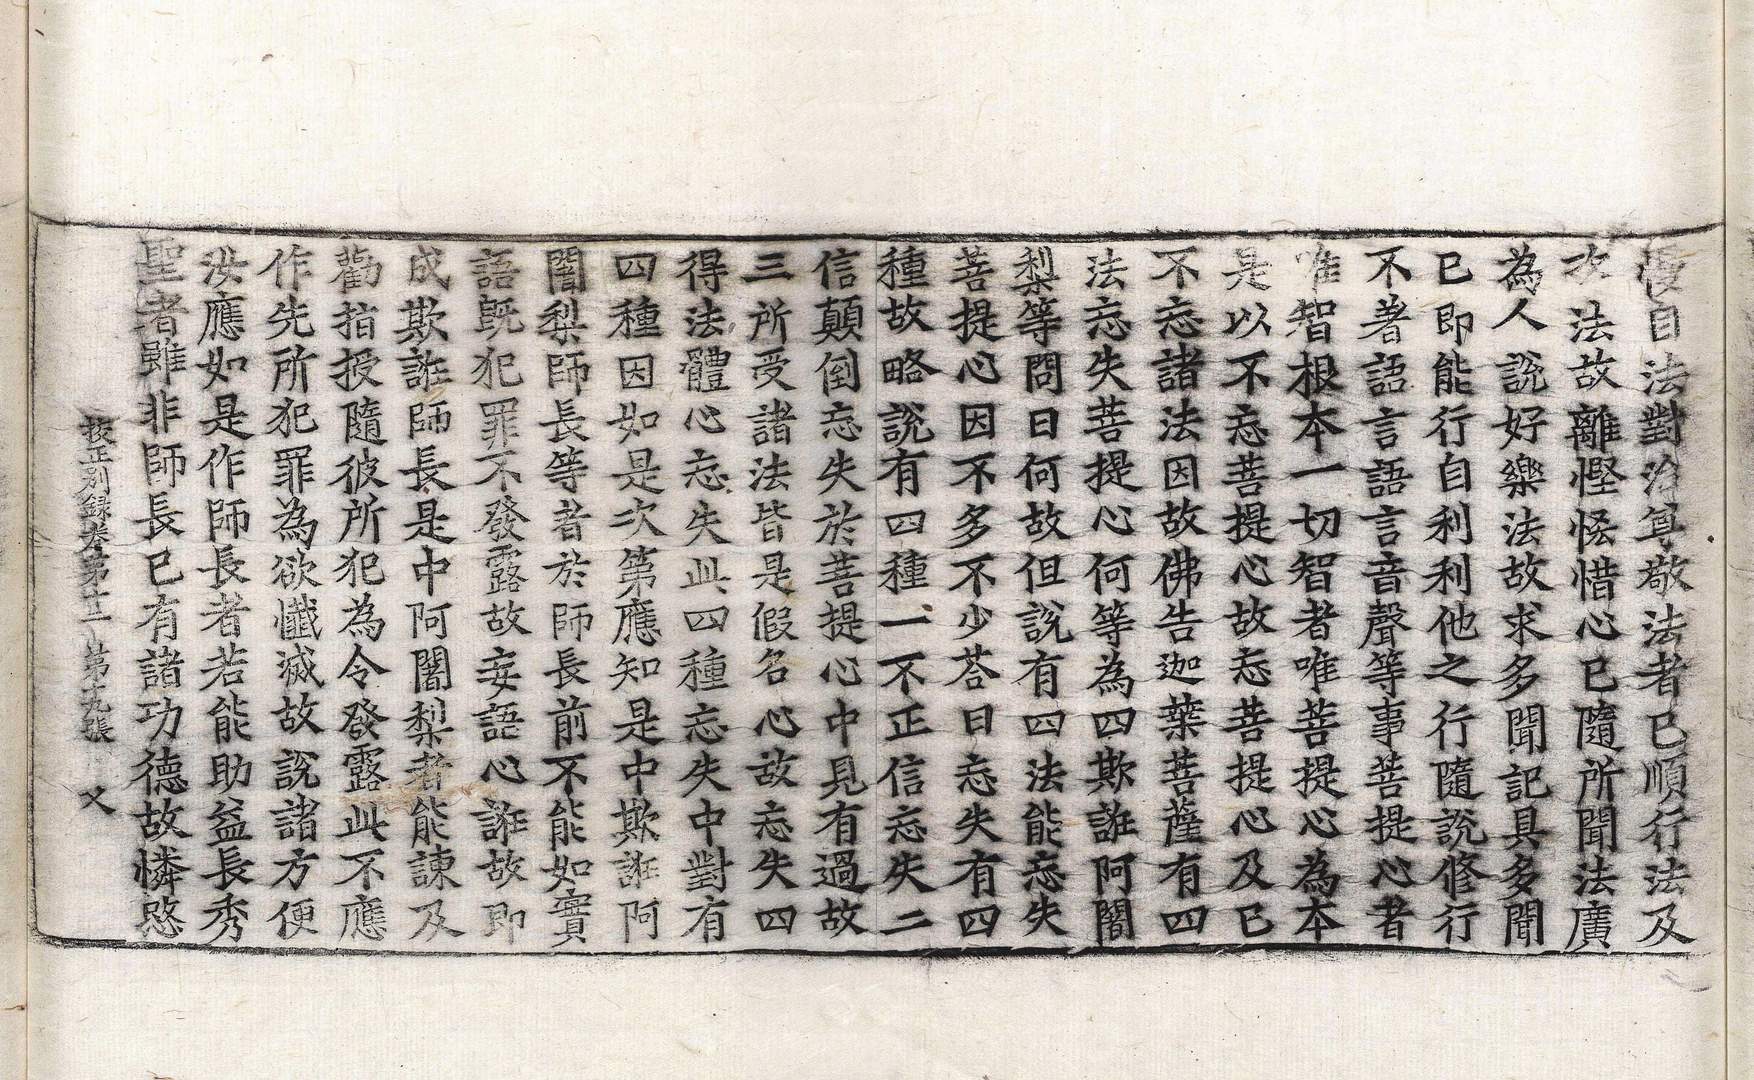 慢自法對治尊敬法者已順行法及
次法故離慳悋惜心已隨所聞法廣
為人說好樂法故求多聞記具多聞
已即能行自利利他之行隨說修行
不著語言語言音聲等事菩提心者
唯智根本一切智者唯菩提心為本
是以不忘菩提心故忘菩提心及已
不忘諸法因故佛告迦葉菩薩有四
法忘失菩提心何等為四欺誑阿闍
梨等問曰何故但說有四法能忘失
菩提心因不多不少荅曰忘失有四
種故略說有四種一不正信忘失二
信顛倒忘失於菩提心中見有過故
三所受諸法皆是假名心故忘失四
得法體心忘失此四種忘失中對有
四種因如是次第應知是中欺誑阿
闍梨師長等者於師長前不能如實
語既犯罪不發露故妄語心誑故即
成欺誑師長是中阿闍梨者能諫及
勸指授隨彼所犯為令發露此不應
作先所犯罪為欲懺滅故說諸方便
汝應如是作師長者若能助益長秀
聖者雖非師長已有諸功德故憐愍
挍正別録卷第十二　第十九張　乂